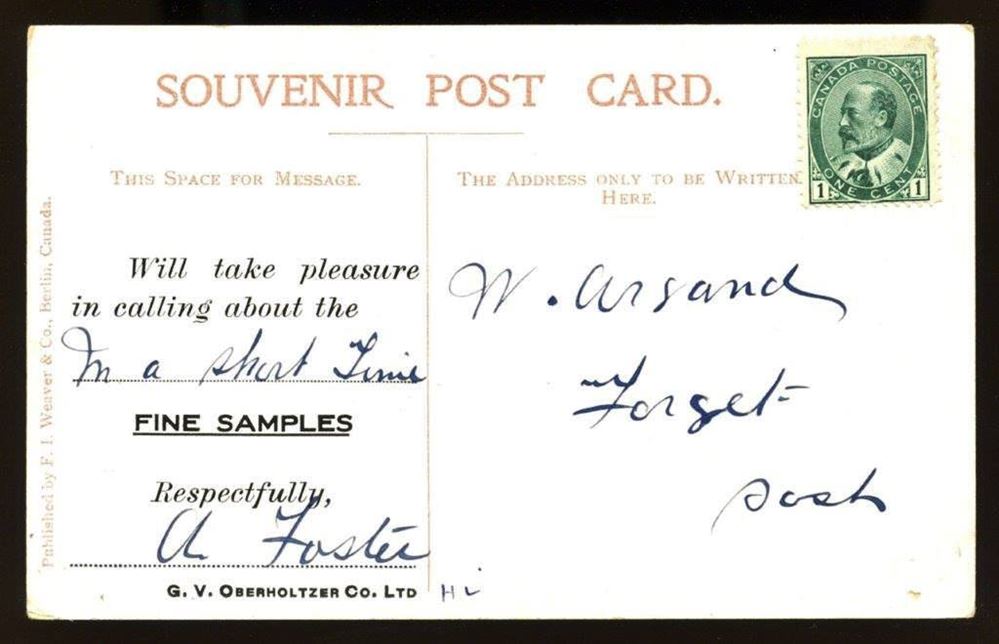 SOUVENIR POST CARD.
THIS SPACE FOR MESSAGE.
THE ADDRESS ONLY TO BE WRITTEN
HERE.
CANADA POSTAGE
ONE CENT
1 1
Published by F. I. Weaver & Co., Berlin, Canada.
Will take pleasure
in calling about the
In a short Time
FINE SAMPLES
Respectfully,
A Foster
G. V. OBERHOLTZER CO. LTD
W. Argand
Forget
Sask